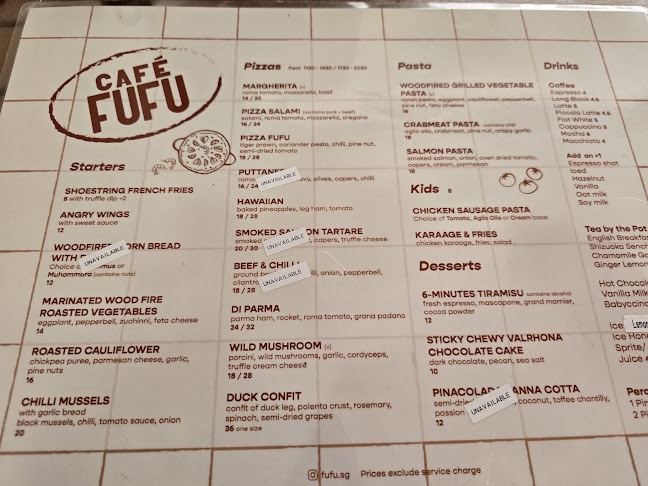 CAFÉ
FUFU
Starters
SHOESTRING FRENCH FRIES
8 with truffle dip +2
ANGRY WINGS
with sweet sauce
12
WOODFIRED CORN BREAD
WITH
UNAVAILABLE
Choice
Muhammara (contains nuts)
12
MARINATED WOOD FIRE
ROASTED VEGETABLES
eggplant, pepperbell, zuchinni, feta cheese
14
ROASTED CAULIFLOWER
chickpea puree, parmesan cheese, garlic,
pine nuts
16
CHILLI MUSSELS
with garlic bread
black mussels, chilli, tomato sauce, onion
20
Pizzas from 1130 - 1430 / 1730 - 2030
MARGHERITA (v)
roma tomato, mozzarella, basil
16 / 20
PIZZA SALAMI (contains pork + beef)
salami, roma tomato, mozzarella, oregano
16 / 24
PIZZA FUFU
tiger prawn, coriander pesto, chilli, pine nut,
semi-dried tomato
18 / 28
PUTTANE
UNAVAILABLE
olives, capers, chilli
16 / 24
HAWAIIAN
baked pineapples, leg ham, tomato
18 / 28
SMOKED SALMON TARTARE
UNAVAILABLE
capers, truffle cheese
20 / 30
BEEF & CHILLI
UNAVAILABLE
ground onion, pepperbell,
cilantro
18 / 28
DI PARMA
parma ham, rocket, roma tomato, grana padano
24 / 32
WILD MUSHROOM (v)
porcini, wild mushrooms, garlic, cordyceps,
truffle cream cheese
18 / 28
DUCK CONFIT
confit of duck leg, polenta crust, rosemary,
spinach, semi-dried grapes
36 one size
Pasta
WOODFIRED GRILLED VEGETABLE
PASTA (v)
pesto, eggplant, cauliflower, pepperbell,
pine nut, feta cheese
16
CRABMEAT PASTA
aglio olio, crabmeat, pine nut, crispy garlic
18
SALMON PASTA
smoked salmon, onion, oven dried tomato,
capers, cream, parmesan
18
Kids 8
CHICKEN SAUSAGE PASTA
Choice of Tomato, Aglio Olio or Cream base
KARAAGE & FRIES
chicken karaage, fries, salad
Desserts
6-MINUTES TIRAMISU contains alcohol
fresh espresso, mascapone, grand marnier,
cocoa powder
12
STICKY CHEWY VALRHONA
CHOCOLATE CAKE
dark chocolate, pecan, sea salt
10
PINACOLADA PANNA COTTA
UNAVAILABLE
semi-dried coconut, toffee chantilly,
passion
12
Drinks
Coffee
Espresso 4
Long Black 4.5
Latte 5
Piccolo Latte 4.5
Flat White 5
Cappuccino 5
Mocha 6
Macchiato 4
Add on +1
Espresso shot
Iced
Hazelnut
Vanilla
Oat milk
Soy milk
Tea by the Pot
English Breakfa
Shizuoka Sench
Chamomile
Ginger Lemon
Hot Choco
Vanilla Milk
Babyccino
Lemon
Ice
Ice
Sprite/
Juice
Pero
1 Pin
2 Pi
fufu.sg Prices exclude service charge